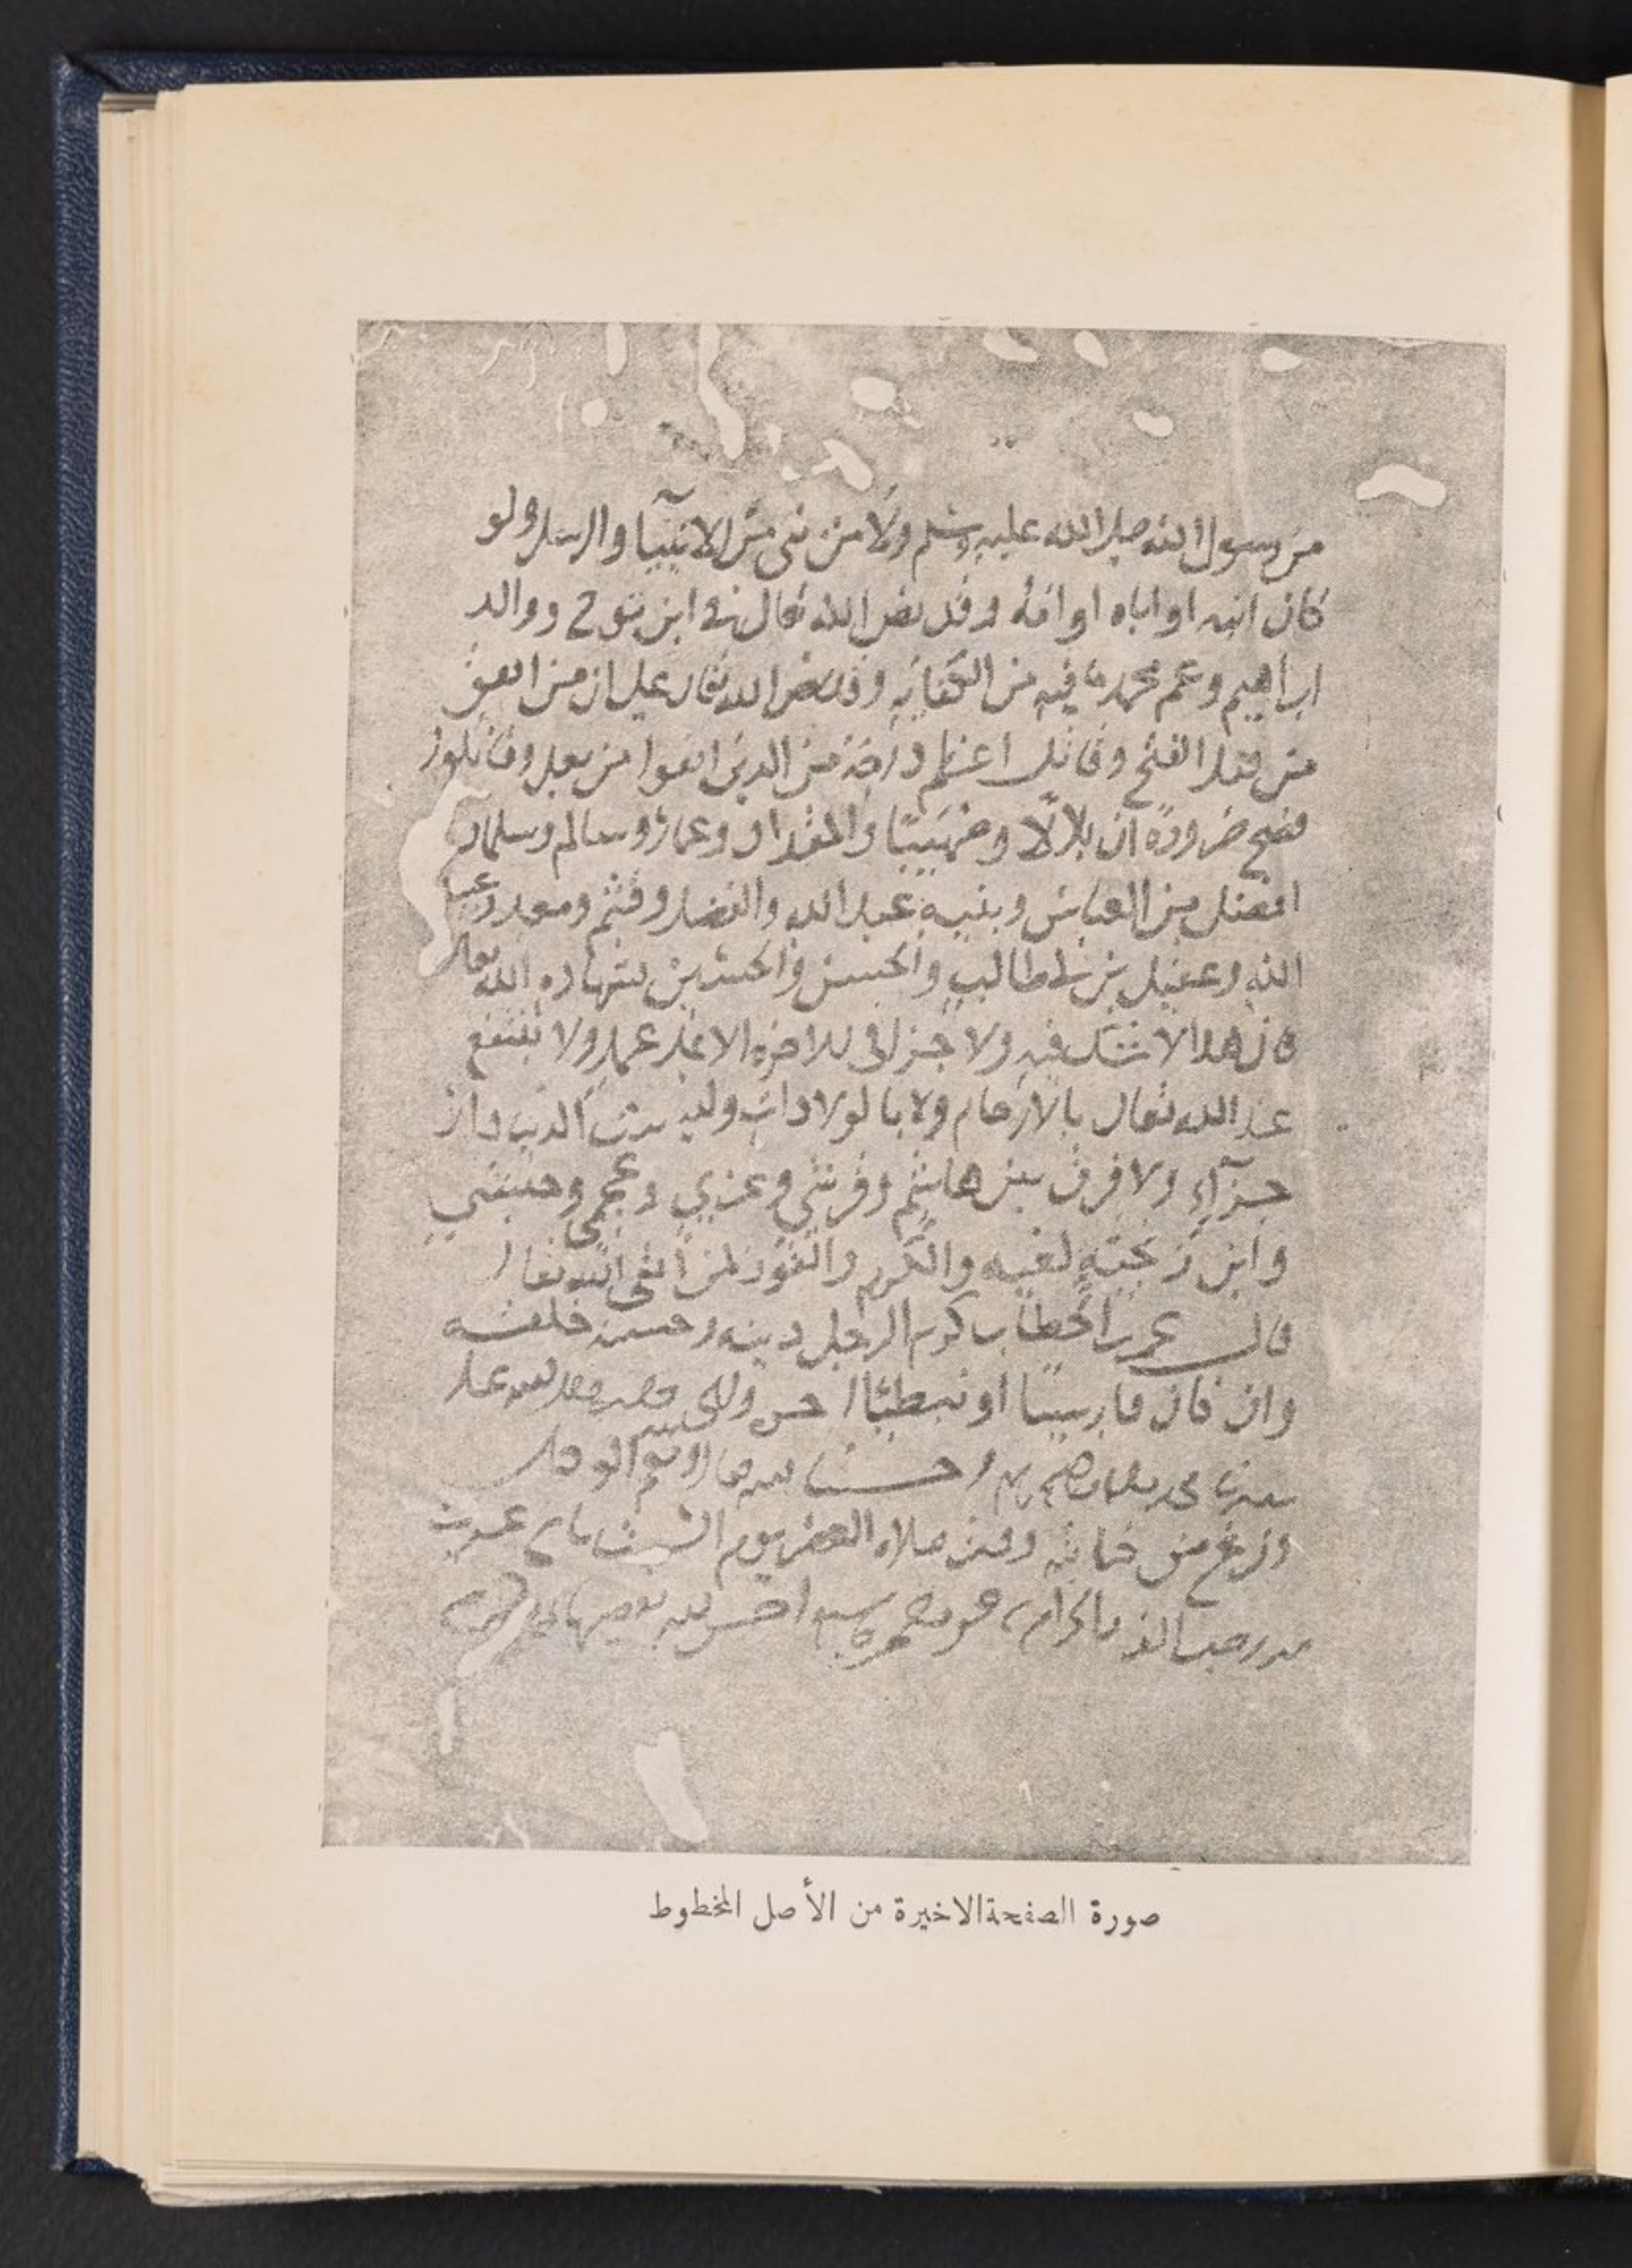 من رسول الله صلى الله عليه وسلم ولا من نبي من الانبيا والرسل ولو
كان ابنه او اباه او امه وقد نص الله تعالى في ابن نوح ووالد
ابراهيم وعم محمد ما فيه من الكفاية وقد نص الله تعالى على ان من انفق
من قبل الفتح وقاتل اعظم درجة من الذين انفقوا من بعد وقاتلوا
فصح ضرورة ان بلالا وصهيبا والمقداد وعمارا وسالم وسلمان
افضل من العباس وبنيه عبد الله والفضل وقثم ومعبد وعبيد
الله وعقيل بن ابي طالب والحسن والحسين بشهادة الله تعالى
فان هذا لا شك فيه ولا جزا في الاخرة الا على عمل ولا ينتفع
عند الله تعالى بالارحام ولا بالولادات وليست الدنيا دار
جزآء ولا فرق بين هاشمي وقرشي وعربي وعجمي وحبشي
وابن زنجية لغية والكرم والفوز لمن اتقى الله تعالى
قال عمر بن الخطاب كرم الرجل دينه وحسبه خلقه
وان كان فارسيا او نبطيا
وفرغ من كتابته وقت صلاة العصر يوم السبت
صورة الصفحة الاخيرة من الأصل المخطوط